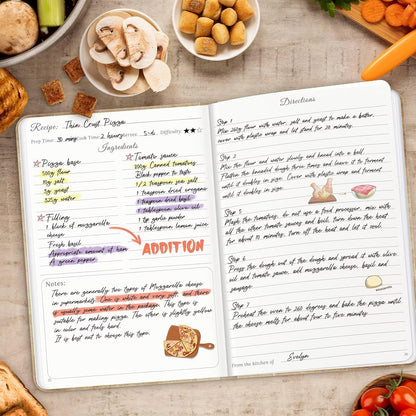 Recipe: Thin Crust Pizza
Prep Time: 30 mins Cook Time: 2 hours Serves: 5-6 Difficulty: ★★☆
Ingredients
Pizza base
500g flour
10g salt
3g yeast
325g water
Filling
1 block of mozzarella
cheese
Fresh basil
Appropriate amount of ham
A green pepper
Tomato sauce
200g Canned tomatoes
Black pepper to taste
1/2 teaspoon sea salt
1 teaspoon dried oregano
1 teaspoon dried basil
1 tablespoon olive oil
1 tsp garlic powder
1 tablespoon lemon juice
ADDITION
Notes:
There are generally two types of Mozzarella cheese
in supermarkets. One is white and very soft, and there
is usually some water in the package. This type is
suitable for making pizza. The other is slightly yellow
in color and fully hard.
It is best not to choose this type.
Directions
Step 1
Mix 250g flour with water, salt and yeast to make a batter,
cover with plastic wrap and let stand for 20 minutes.
Step 2
Mix the flour and water slowly and knead into a ball.
Flatten the kneaded dough three times and leave it to ferment
until it doubles in size. Cover with plastic wrap and ferment
until it doubles in size.
Step 3
Mash the tomatoes, do not use a food processor, mix with
all the other tomato sauces and boil, turn down the heat
for about 10 minutes. Turn off the heat and let it cool.
Step 6
Press the dough out of the dough and spread it with olive
oil and tomato sauce, add mozzarella cheese, basil and
sausage.
Step 7
Preheat the oven to 260 degrees and bake the pizza until
the cheese melts for about four to five minutes.
From the kitchen of Evelyn